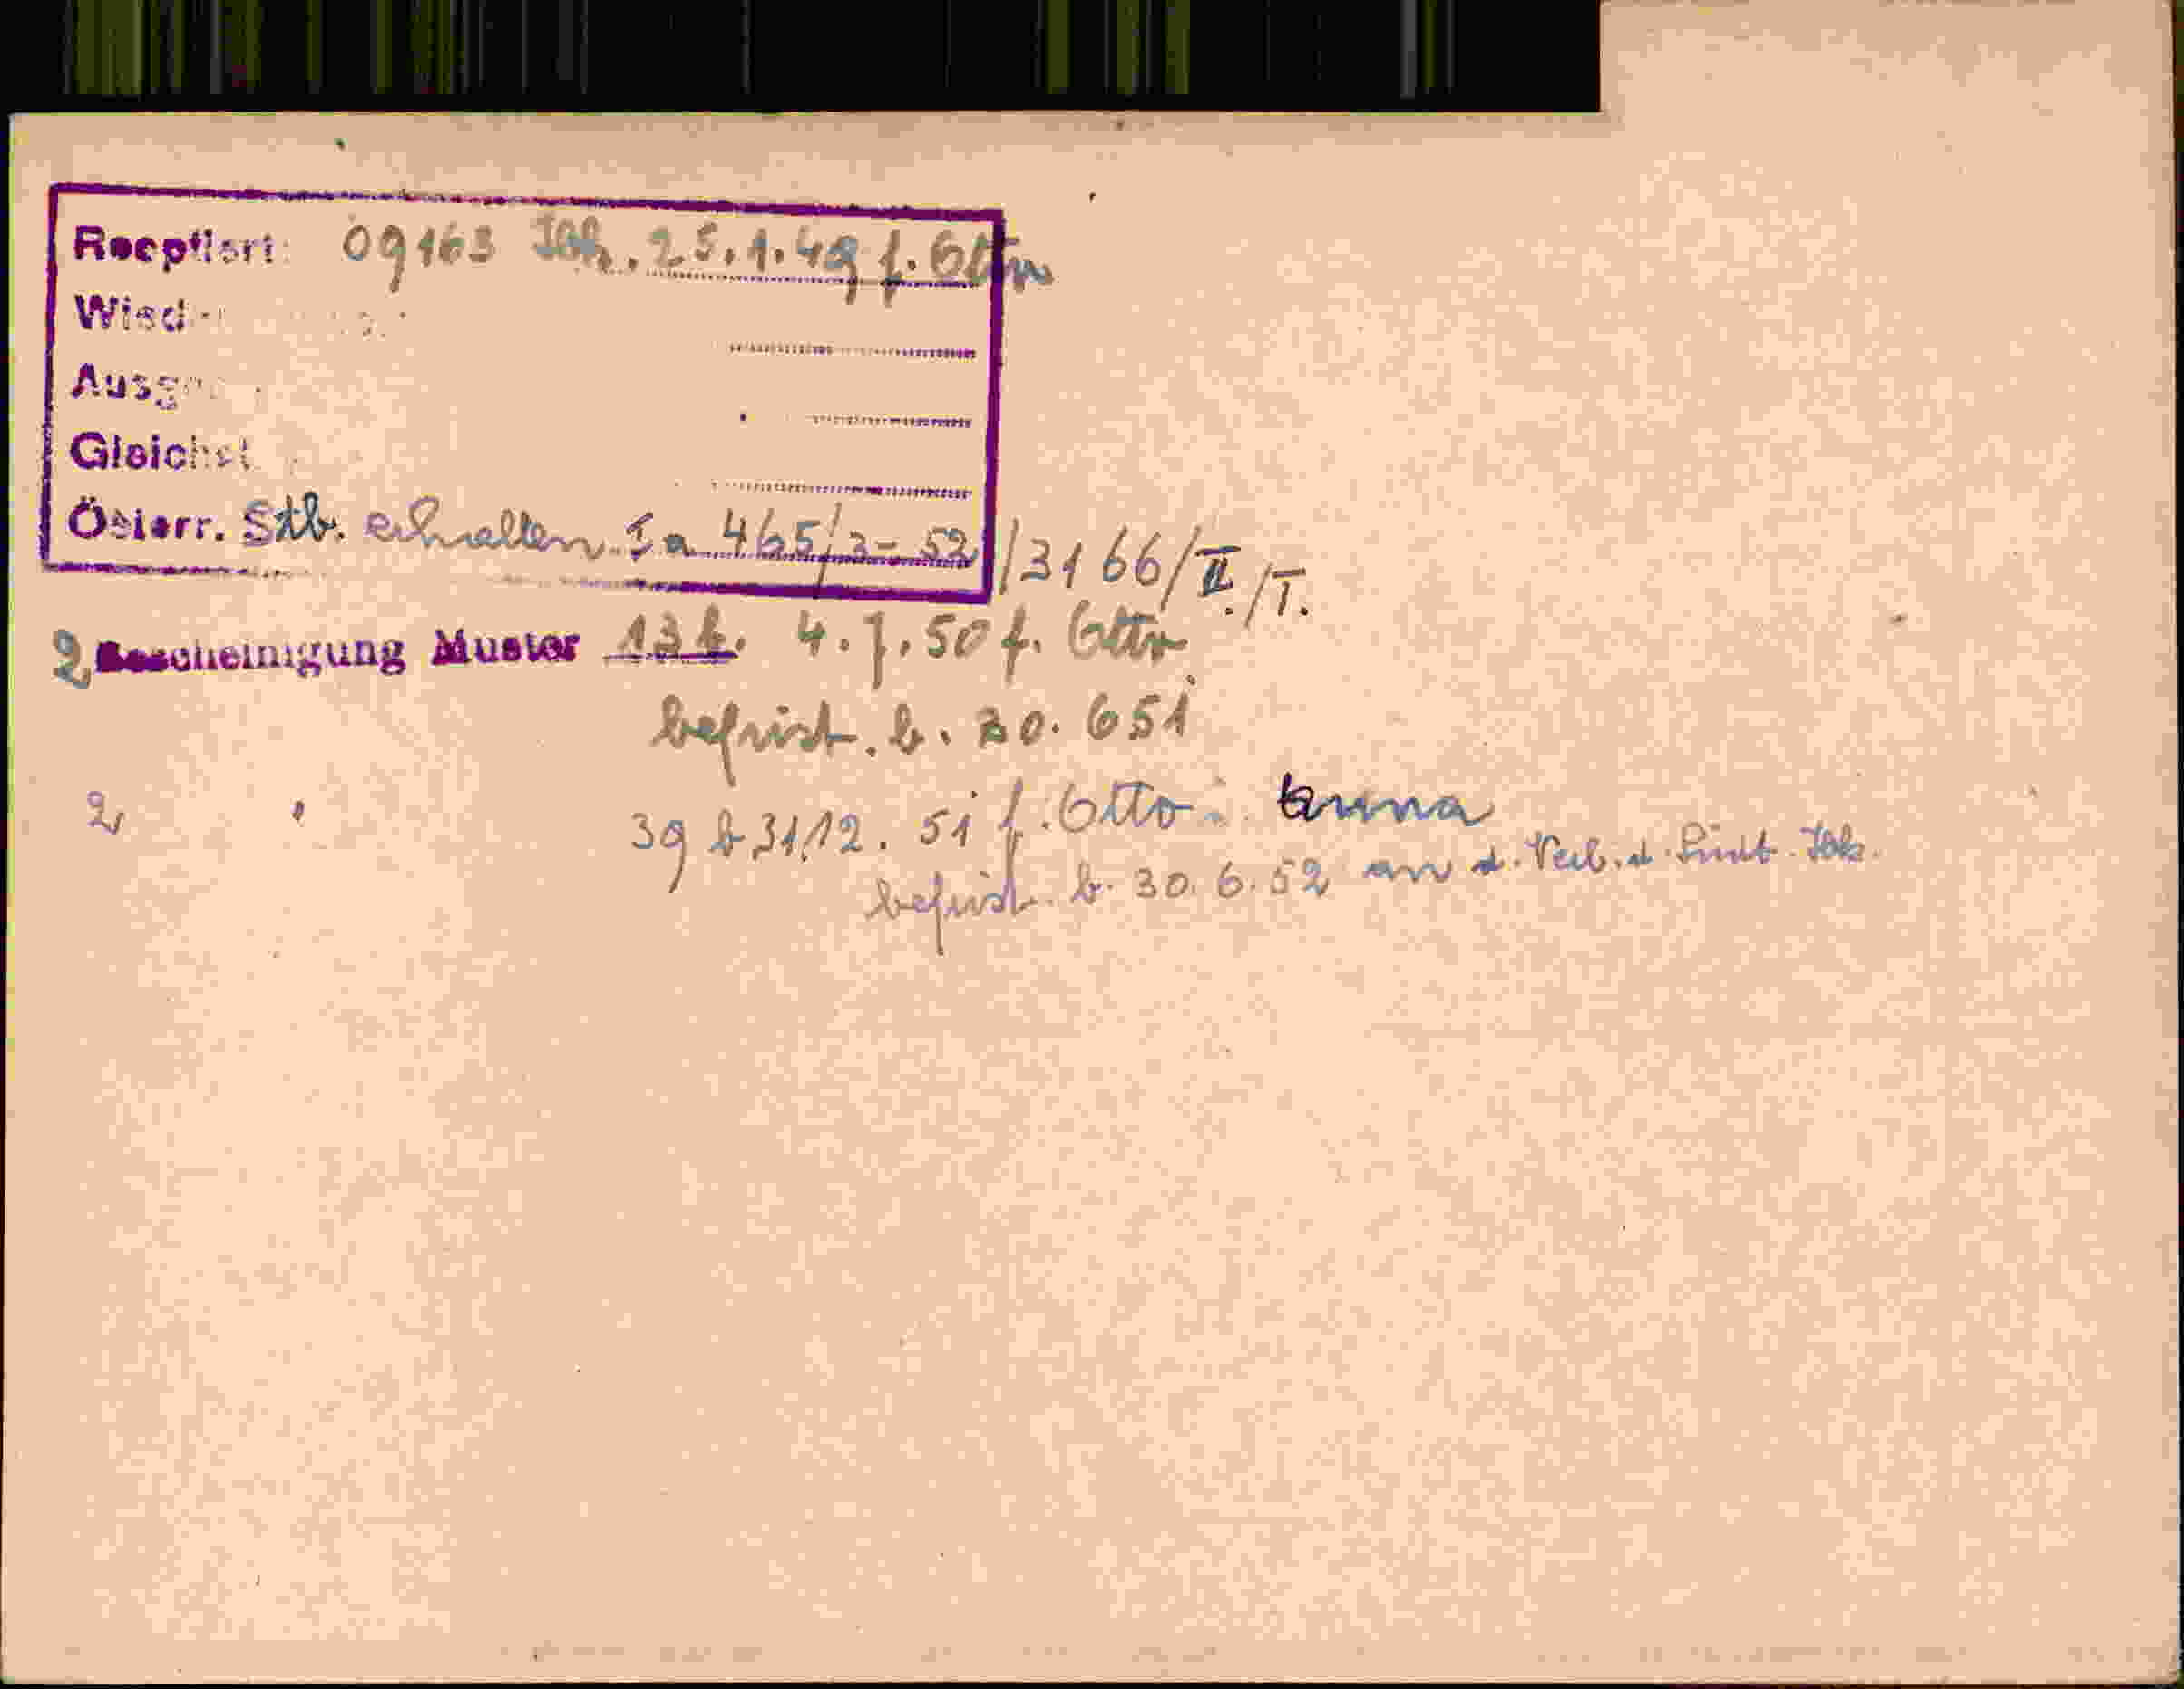 Reeptiert 09163 Joh. 25.1.49 f. Otto
Wied
Ausge
Gleichst
Österr. Stb. erhalten Ia 465/3-52/3166/II./T.
2 Bescheinigung Muster 13b. 4.7.50 f. Otto
befrist. b. 30.651
2 " 39 b 31.12.51 f. Otto. Anna
befrist. b. 30.6.52 an d. Verb. d.